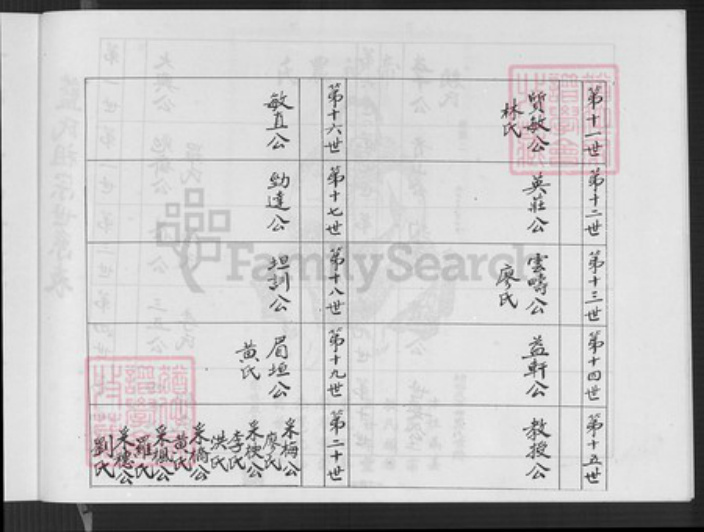 第十一世
質敏公
林氏
第十二世
英莊公
第十三世
雲疇公
廖氏
第十四世
益軒公
第十五世
教授公
第十六世
敏直公
第十七世
勁達公
第十八世
坦訓公
第十九世
眉垣公
黄氏
第二十世
采梅公
廖氏
采楩公
李氏
洪氏
采橋公
黄氏
采楓公
羅氏
采穗公
劉氏
FamilySearch